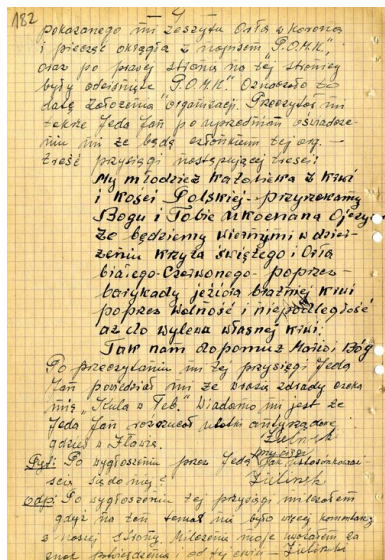 182
pokazanego mi zeszytu Orła w koronie
i pieczęć okrągła z napisem "P.O.M.K."
oraz po prawej stronie na tej stronicy
były odciśnięte "P.O.M.K." Oznaczało to
datę założenia organizacji. Przeczytał mi
także Jeda Jan po uprzednim oświadcze-
niu mi że będę członkiem tej org. –
treść przysięgi następującej treści:
My młodzież katolicka z krwi
i kości Polskiej – przyrzekamy
Bogu i Tobie ukochana Ojczy-
że będziemy wiernymi w dzier-
żeniu krzyża świętego i Orła
białego-Czerwonego – poprzez
barykady jeziora bratniej krwi
poprzez wolność i niepodległość
aż do wylewa własnej krwi.
Tak nam dopomóż Bog
Po przeczytaniu mi tej przysięgi Jeda
Jan powiedział mi że wrazie zdrady czeka
mię "Kula w Łeb." Wiadomo mi jest że
Jeda Jan rozrzucał ulotki antyrządowe
gdzieś w Iławie.
Zieliński
Pyt: Po wygłoszeniu przez Jeda Jan przysięgi
ście się do niej?
Zieliński
Odp: Po wygłoszeniu tej przysięgi milczałem
gdyż na ten temat nie było więcej komentarzy
z naszej strony. Milczenie moje uważałem za
znak potwierdzenia i od tej